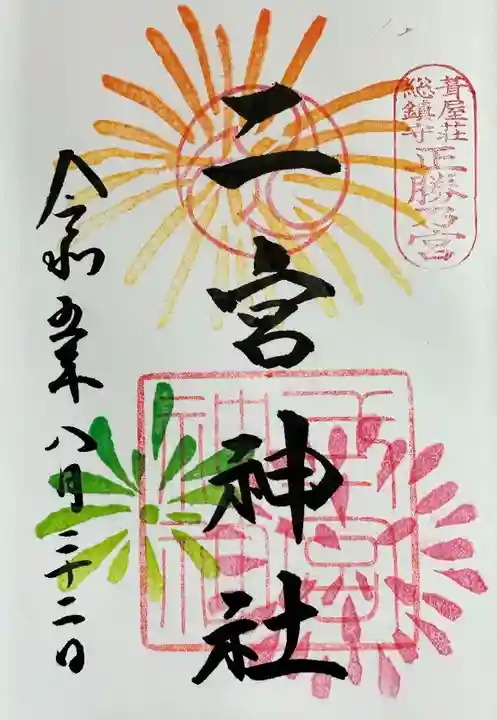 葺屋荘
総鎮守
正勝乃宮
二宮神社
令和五年八月二十二日
二宮神社